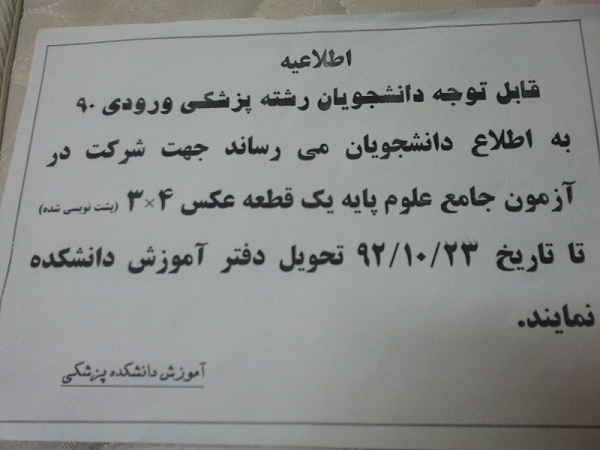 اطلاعیه
قابل توجه دانشجویان رشته پزشکی ورودی ۹۰
به اطلاع دانشجویان می رساند جهت شرکت در
آزمون جامع علوم پایه یک قطعه عکس ۴×۳ (پشت نویسی شده)
تا تاریخ ۹۲/۱۰/۲۳ تحویل دفتر آموزش دانشکده
نمایند.
آموزش دانشکده پزشکی